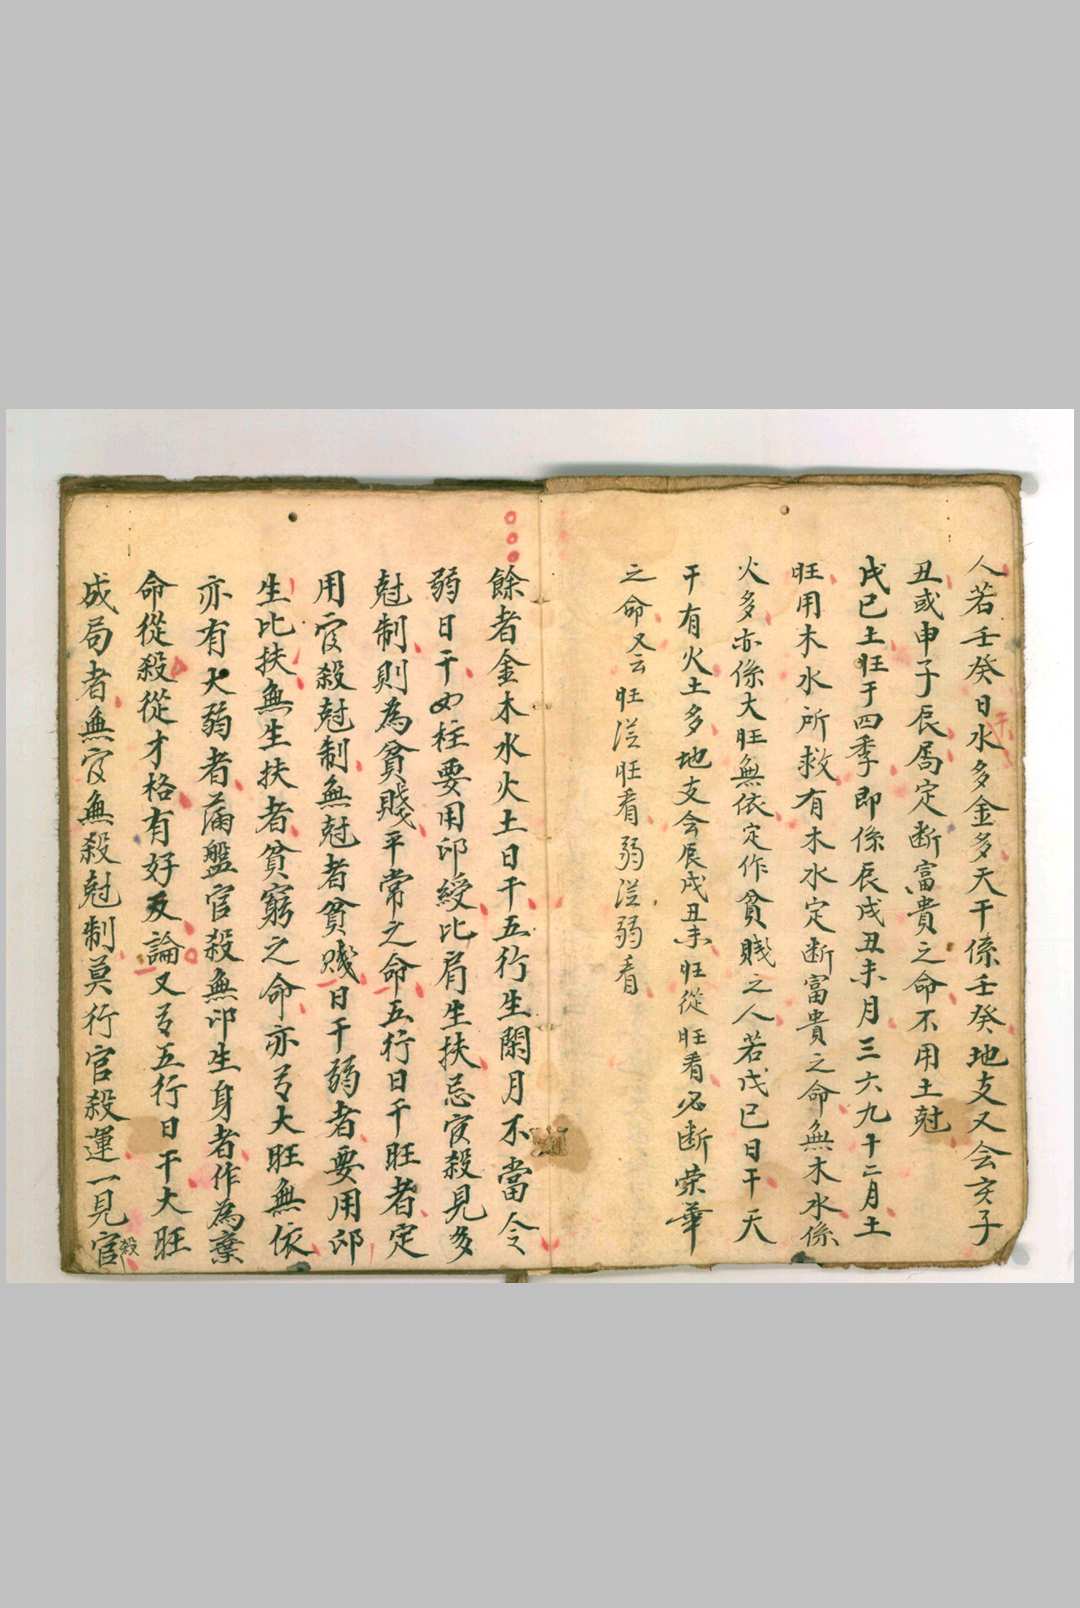 人若壬癸日干水多金多天干係壬癸地支又会亥子
丑或申子辰局定断富貴之命不用土尅
戊已土旺于四季即係辰戌丑未月三六九十二月土
旺用木水所救有木水定断富貴之命無木水係
火多亦係大旺無依定作貧賤之人若戊已日干天
干有火土多地支会辰戌丑未旺從旺看必断荣華
之命又云旺從旺看弱從弱看
餘者金木水火土日干五行生閑月不當令
弱日干四柱要用印綬比肩生扶忌官殺見多
尅制則為貧賤平常之命五行日干旺者定
用官殺尅制無尅者貧賤日干弱者要用印
生比扶無生扶者貧窮之命亦有大旺無依
亦有大弱者滿盤官殺無印生身者作為棄
命從殺從才格有好及論又有五行日干大旺
成局者無官無殺尅制莫行官殺運一見官殺